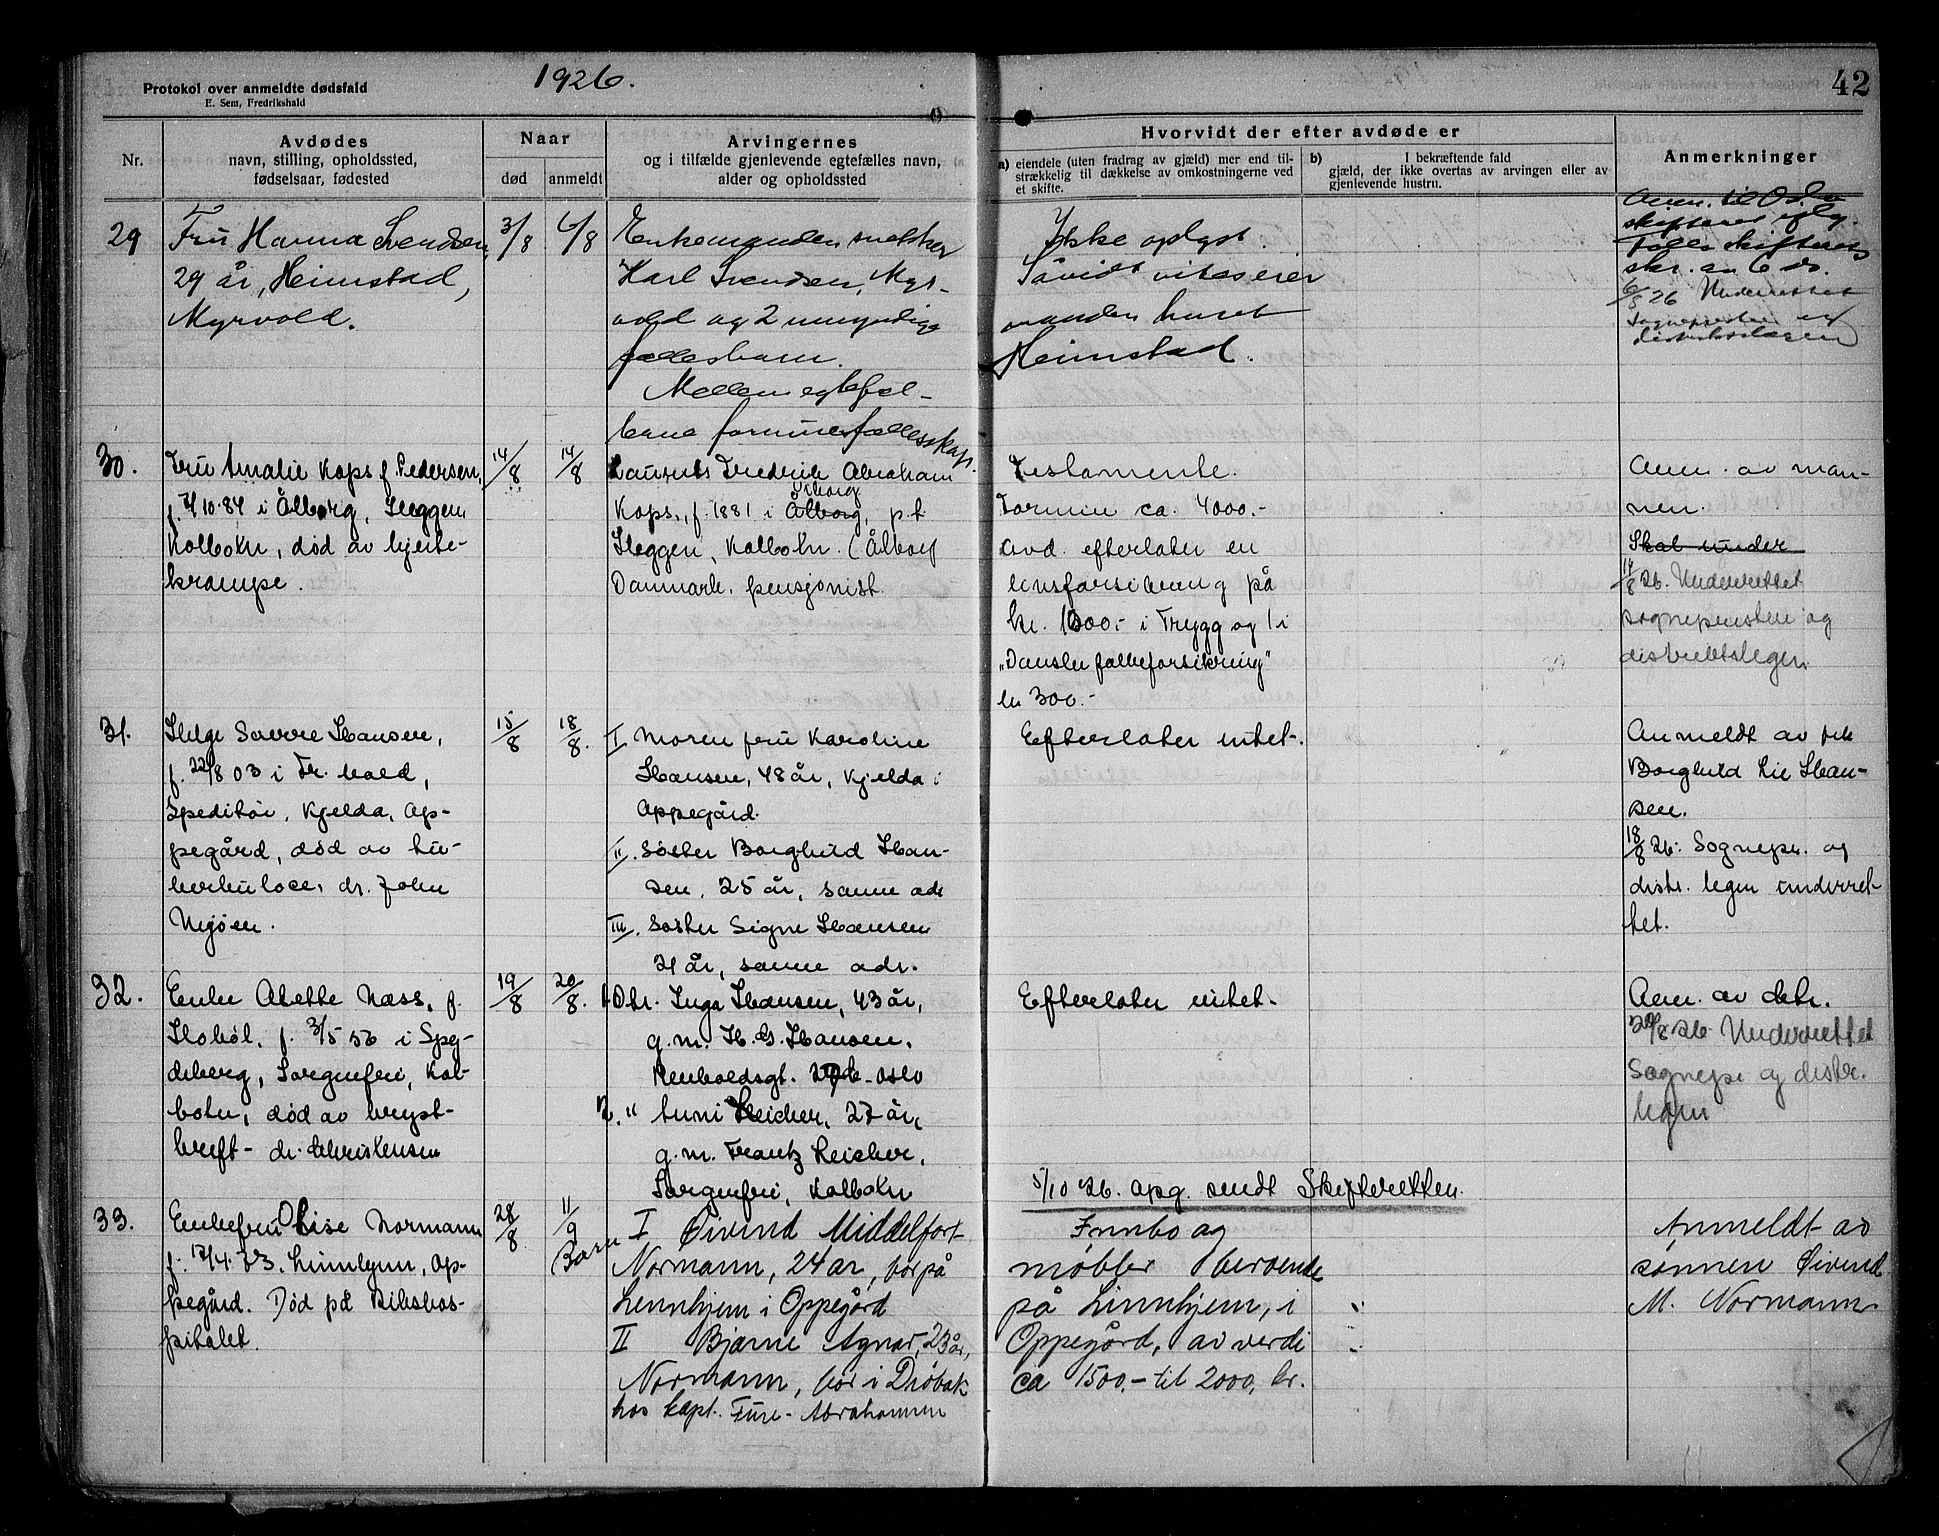 Protokol over anmeldte dødsfald
E. Sem, Fredrikshald
1926.
42
Nr.
Avdødes
navn, stilling, opholdssted,
fødselsaar, fødested
Naar
død
anmeldt
Arvingernes
og i tilfælde gjenlevende egtefælles navn,
alder og opholdssted
Hvorvidt der efter avdøde er
a) eiendele (uten fradrag av gjæld) mer end til-
strækkelig til dækkelse av omkostningerne ved
et skifte.
b) I bekræftende fald
gjæld, der ikke overtas av arvingen eller av
gjenlevende hustru.
Anmerkninger
29
Fru Hanna Svendsen,
29 år, Heimstad,
Myrvold.
3/8
6/8
Enkemanden snekker
Karl Svendsen, Myr-
vold og 2 umyndige
fællesbarn.
Mellem egtefæl-
lerne formuesfællesskap.
Ikke oplyst.
Såvidt vites eier
manden huset
Heimstad.
Anm. til Oslo
skifteret iflg.
Follo skifterets
skr. av 6 ds.
6/8 26 Underrettet
sognepresten og
distriktslægen
30.
Fru Amalie Kops f. Pedersen,
f. 4/10-84 i Ålborg, Heggen
Kolbotn, død av hjerte-
krampe.
14/8
14/8
Laurits Fredrik Abraham
Kops, f. 1881 i Ålborg, p.t.
Heggen, Kolbotn. (Ålborg
Danmark, pensjonist.
Testamente.
Formue ca. 4000.-
Avd. efterlater en
livsforsikring på
kr. 1000.- i Trygg og 1 i
"Danske folkeforsikring"
kr 300.-
Anm. av man-
nen.
Skal under
14/8 26. Underrettet
sognepresten og
distriktslegen
31.
Helge Sverre Hansen,
f. 22/8 03 i Fr. hald,
Speditør, Kjelda, Op-
pegård, død av tu-
berkulose, dr. John
Mjøen.
15/8
18/8.
I. Moren fru Karoline
Hansen, 48 år, Kjelda i
Oppegård.
II. Søster Borghild Han-
sen, 25 år, samme adr
III. Søster Signe Hansen
21 år, samme adr.
Efterlater intet.
Anmeldt av frk
Borghild Lie Han-
sen.
18/8 26. Sognepr. og
distr. legen underret-
tet.
32.
Enke Abette Næss, f.
Hobøl, f. 3/5 53 i Spy-
deberg, Sorgenfri, Kol-
botn, død av bryst-
kreft - dr. Christensen
19/8
20/8.
1. Dtr. Inga Hansen, 43 år,
g.m. H. G. Hansen,
2. "
27 år,
g.m. Frantz Reicher,
Sorgenfri, Kolbotn
Efterlater intet-
Anm. av dtr.
20/8 26 Underrettet
Sognepr og distr.
legen
5/10 26. Opg. sendt Skifteretten.
33.
Enkefru Olise Normann
f. 17/4. 73. Linnhjem, Op-
pegård. Død på Rikshos-
pitalet.
28/8
11/9
Barn
I Øivind Middelfort
Normann, 24 år, bor på
Lennhjem i Oppegård
II Bjarne Agnar, 23 år,
Normann, bor i Drøbak
hos kapt. Fure-Abrahamsen
Innbo og
møbler beroende
på Linnhjem, i
Oppegård, av verdi
ca 1500,- til 2000, kr.
Anmeldt av
sønnen Øivind
M. Normann